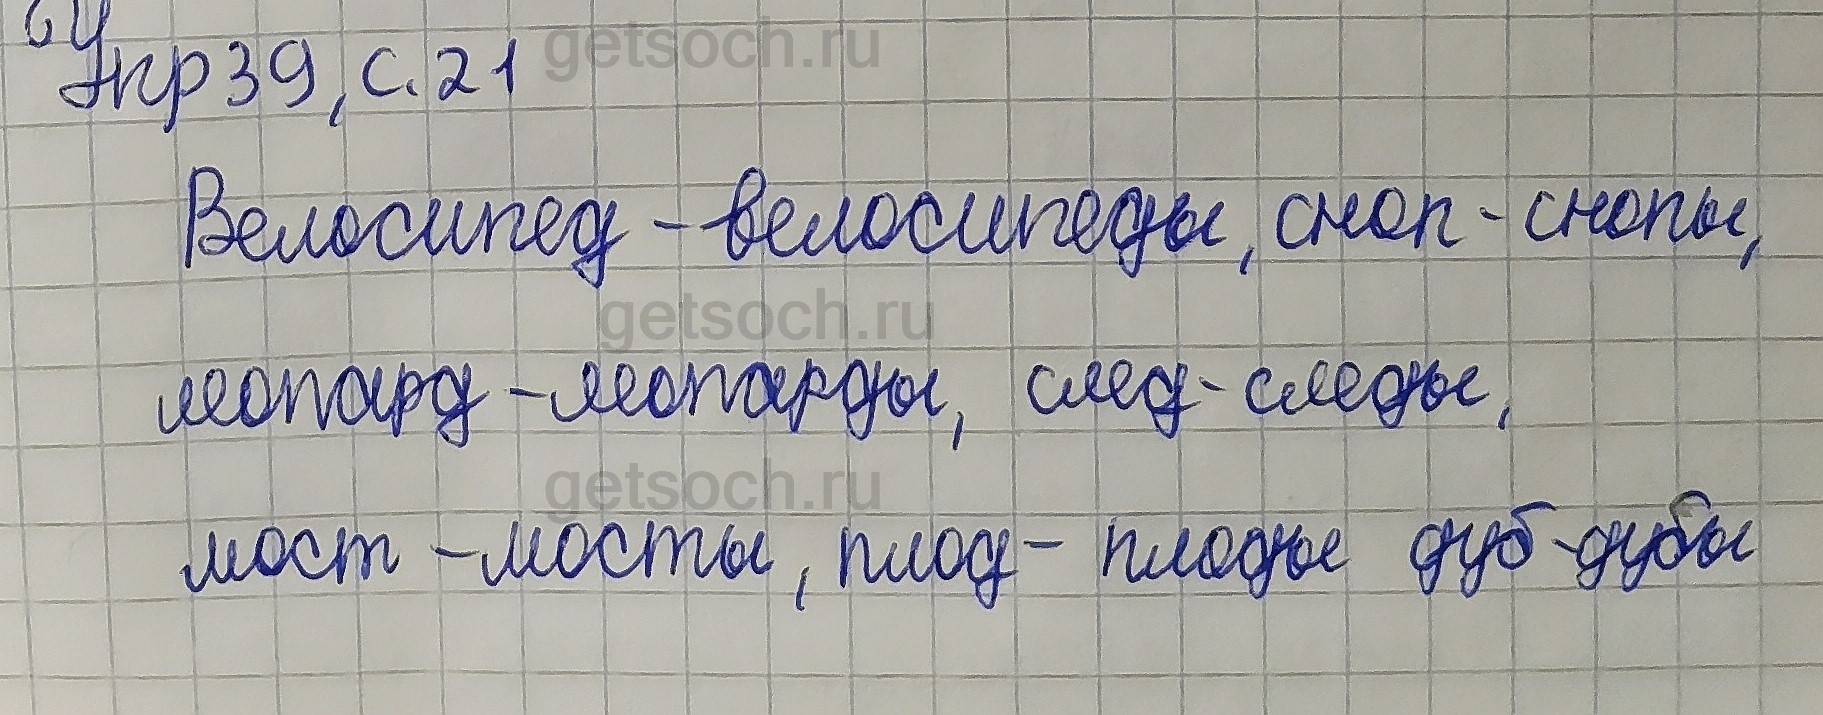 Упр 39, с. 21 getsoch.ru
Велосипед - велосипеды, сноп - снопы,
getsoch.ru
леопард - леопарды, след - следы,
getsoch.ru
мост - мосты, плод - плоды дуб - дубы